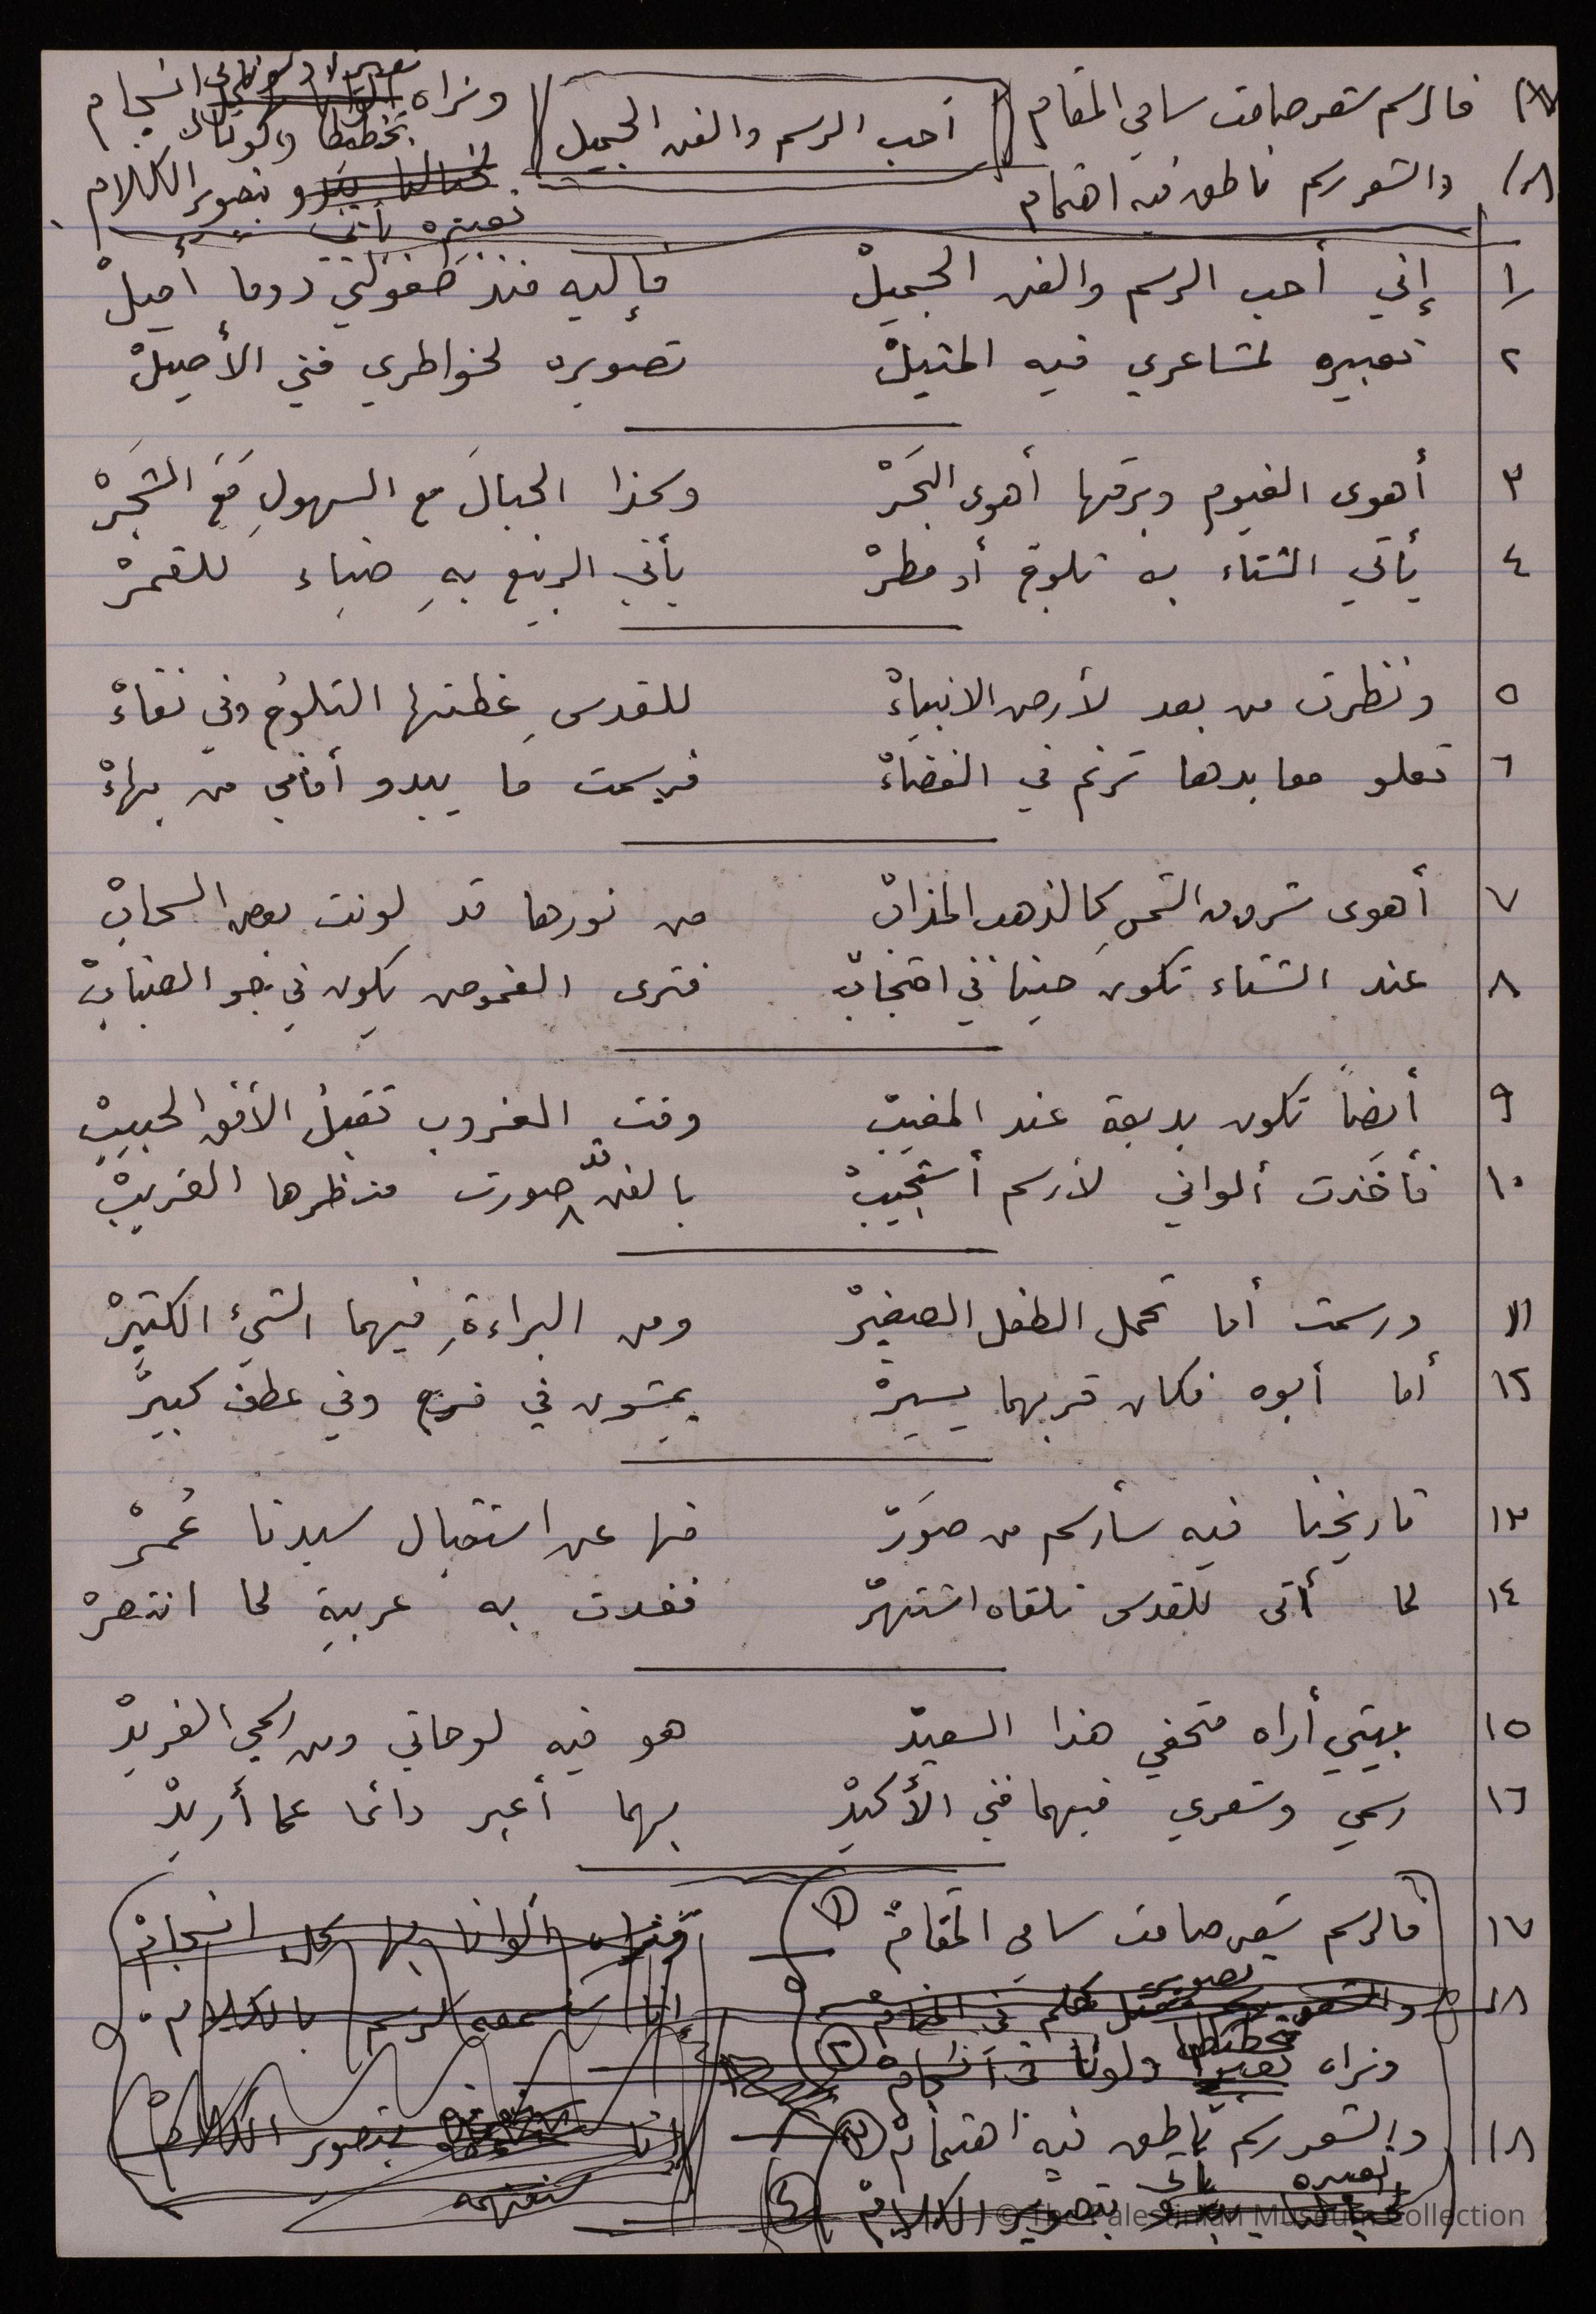 ١٧) فالرسم شعر صامت سامي المقام ونراه انسجام
أحب الرسم والفن الجميل
تخطيطا وألوانا
١٨) والشعر رسم ناطق فيه اهتمام بتصوير الكلام
تعبيره يأتي
١ إني أحب الرسم والفن الجميلْ فإليه منذ طفولتي دوما أميلْ
٢ تعبيره لمشاعري فيه المثيلْ تصويره لخواطري فني الأصيلْ
٣ أهوى الغيوم وبرقها أهوى البَحَرْ وكذا الجبالَ مع السهولِ مَعَ الشَجَرْ
٤ يأتي الشتاء به ثلوج أو مطرْ يأتي الربيع بهِ ضياء للقمرْ
٥ ونظرت من بعد لأرض الانبياءْ للقدسِ غطتها الثلوجُ وفي نقاءْ
٦ تعلو معابدها ترنم في الفضاءْ فرسمت ما يبدو أمامي من بهاءْ
٧ أهوى شروق الشمسِ كالذهب المذابْ من نورها قد لونت بعض السحابْ
٨ عند الشتاء تكون حينا في احتجابْ فترى الغموض يكون في جو الضبابْ
٩ أيضاً تكون بديعة عند المغيبْ وقت الغروب تقبلُ الأفق الحبيبْ
١٠ فأخذت ألواني لأرسم أستجيبْ بالفن قد صورت منظرها الغريبْ
١١ ورسمت أما تحمل الطفل الصغيرْ ومن البراءةِ فيهما الشيء الكثيرْ
١٢ أما أبوه فكان قربهما يسيرْ يمشون في فرح وفي عطف كبيرْ
١٣ تاريخنا فيه سأرسم من صوَرْ منها عن استقبال سيدنا عُمرْ
١٤ لما أتى للقدس تلقاه اشتهرْ فغدت به عربيةِ لما انتصرْ
١٥ بيتي أراه متحفي هذا السعيدْ هو فيه لوحاتي ومن رسمي الفريدْ
١٦ رسمي وشعري فيهما فني الأكيدْ بهما أعبر دائما عما أريدْ
١٧ فالرسم شعر صامت سامي المقامْ (١) ألوانا بها كل انسجامْ
١٨ والشعر تصوير بالكلام
ونراه تخطيطا ولونا في انسجامْ (٢)
١٨ والشعر رسم ناطق فيه اهتمامْ (٣) إنا بتصوير الكلامْ
تعبيره يأتي بتصوير الكلامْ (٤)
© The Palestinian Museum Collection